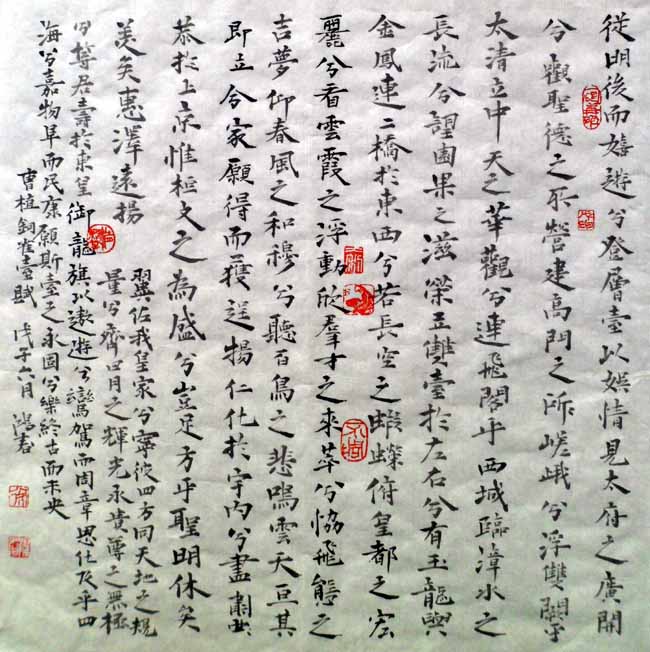 從明後而嬉遊兮登層臺以娛情見太府之廣開
兮觀聖德之所營建高門之嵯峨兮浮雙闕乎
太清立中天之華觀兮連飛閣乎西城臨漳水之
長流兮望園果之滋榮立雙臺於左右兮有玉龍與
金鳳連二橋於東西兮若長空之蝦蝶俯皇都之宏
麗兮看雲霞之浮動欣羣才之來萃兮協飛熊之
吉夢仰春風之和穆兮聽百鳥之悲鳴雲天亘其
即立兮家願得而獲逞揚仁化於宇內兮盡肅
恭於上京惟桓文之為盛兮豈足方乎聖明休矣
美矣惠澤遠揚
翼佐我皇家兮寧彼四方同天地之規
量兮齊日月之輝光永貴尊之無極
兮等君壽於東皇御龍旂以遨遊兮鸞駕而周章恩化及乎四
海兮嘉物阜而民康願斯臺之永固兮樂終古而未央
曹植銅雀臺賦 戊子六月